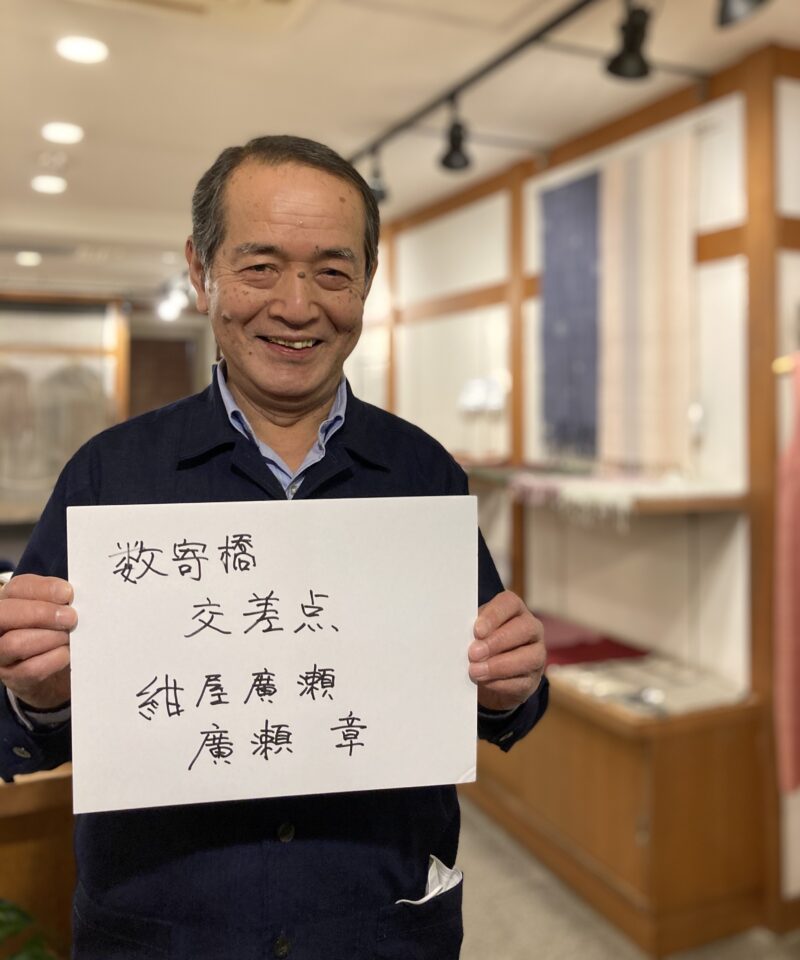 数寄橋
交差点
紺屋廣瀬
廣瀬 章